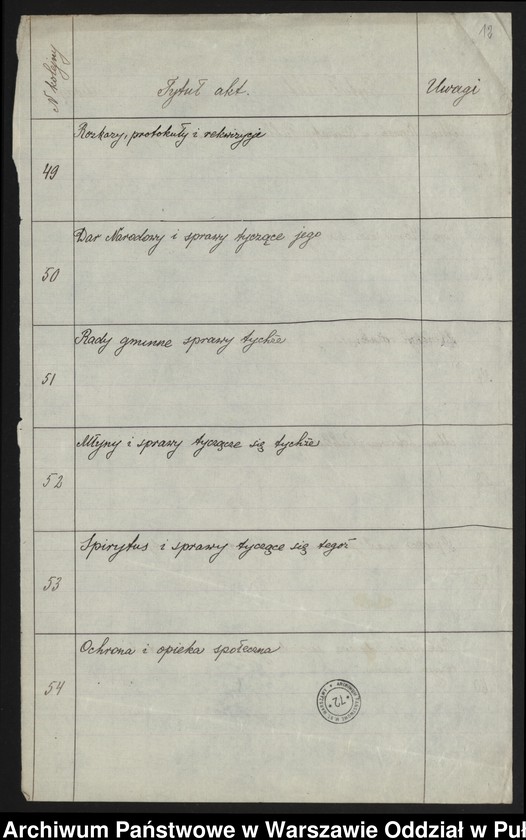 18
N kolejny
Tytuł akt.
Uwagi
49
Rozkazy, protokuły i rekwizycje
50
Dar Narodowy i sprawy tyczące jego
51
Rady gminne sprawy tychże
52
Młyny i sprawy tyczące się tychże
53
Spirytus i sprawy tyczące się tegoż
54
Ochrona i opieka społeczna
72
Archiwum Państwowe w Warszawie Oddział w Puł